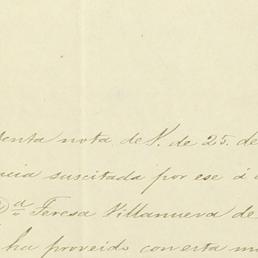 nota de V. de 25. de
suscitada por ese á
D.ª Teresa Villanueva de
ha proveido con esta